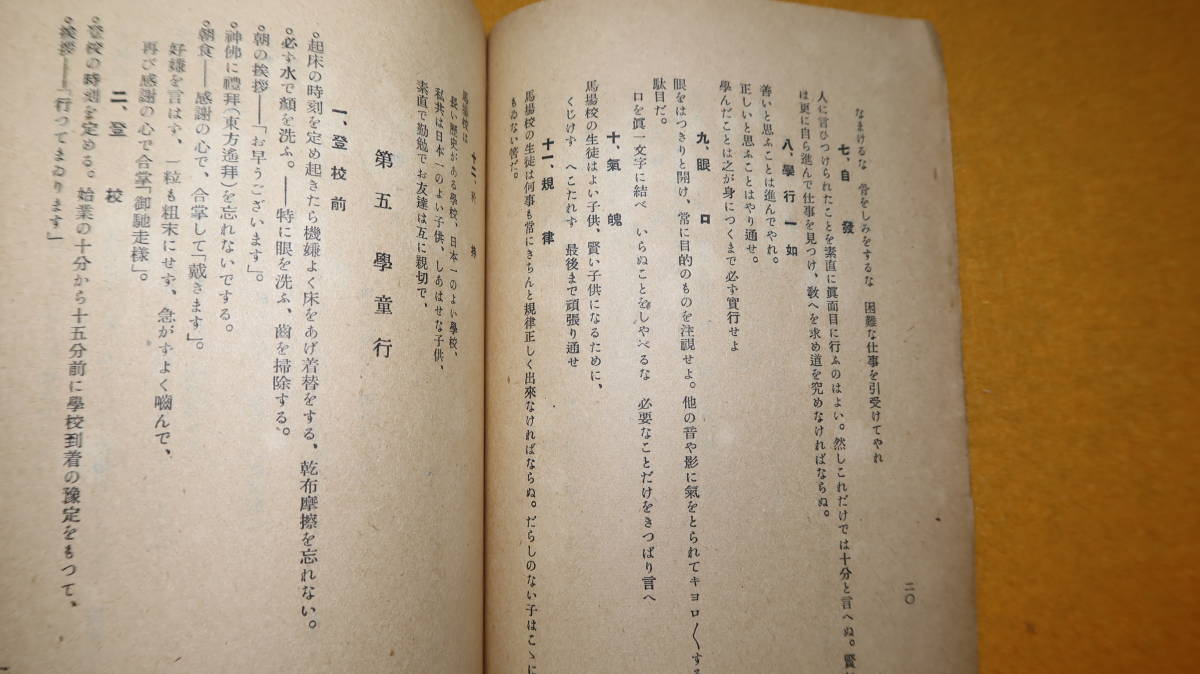 二〇
なまけるな 骨をしみをするな 困難な仕事を引受けてやれ
七、自發
人に言ひつけられたことを素直に眞面目に行ふのはよい。然しこれだけでは十分と言へぬ。賢
は更に自ら進んで仕事を見つけ、敎へを求め道を究めなければならぬ。
八、學行一如
善いと思ふことは進んでやれ。
正しいと思ふことはやり通せ。
學んだことは之が身につくまで必ず實行せよ
九、眼口
眼をはつきりと開け、常に目的のものを注視せよ。他の音や影に氣をとられてキヨロ〱する
駄目だ。
口を眞一文字に結べ いらぬことをしやべるな 必要なことだけをきつぱり言へ
十、氣魄
馬場校の生徒はよい子供、賢い子供になるために、
くじけず へこたれず 最後まで頑張り通せ
十一、規律
馬場校の生徒は何事も常にきちんと規律正しく出來なければならぬ。だらしのない子はこゝに
もゐない筈だ。
十二、
馬場校は
長い歷史がある學校、日本一のよい學校、
私共は日本一のよい子供、しあはせな子供、
素直で勤勉でお友達は互に親切で、
第五 學童行
一、登校前
。起床の時刻を定め起きたら機嫌よく床をあげ着替をする、乾布摩擦を忘れない。
。必ず水で顏を洗ふ。——特に眼を洗ふ、齒を掃除する。
。朝の挨拶——「お早うございます」。
。神佛に禮拜(東方遙拜)を忘れないでする。
。朝食——感謝の心で、合掌して「戴きます」。
好嫌を言はず、一粒も粗末にせず、急がずよく嚙んで、
再び感謝の心で合掌「御馳走樣」。
二、登校
。登校の時刻を定める。始業の十分から十五分前に學校到着の豫定をもつて、
。挨拶——「行つてまゐります」